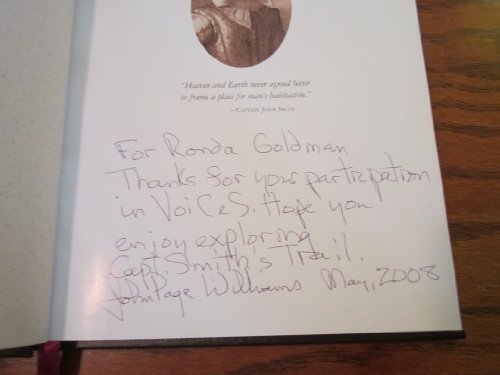 "Heaven and Earth never agreed better
to frame a place for man's habitation."
—Captain John Smith
For Ronda Goldman
Thanks for your participation
in VoiCeS. Hope you
enjoy exploring
Capt. Smith's Trail.
John Page Williams May, 2008